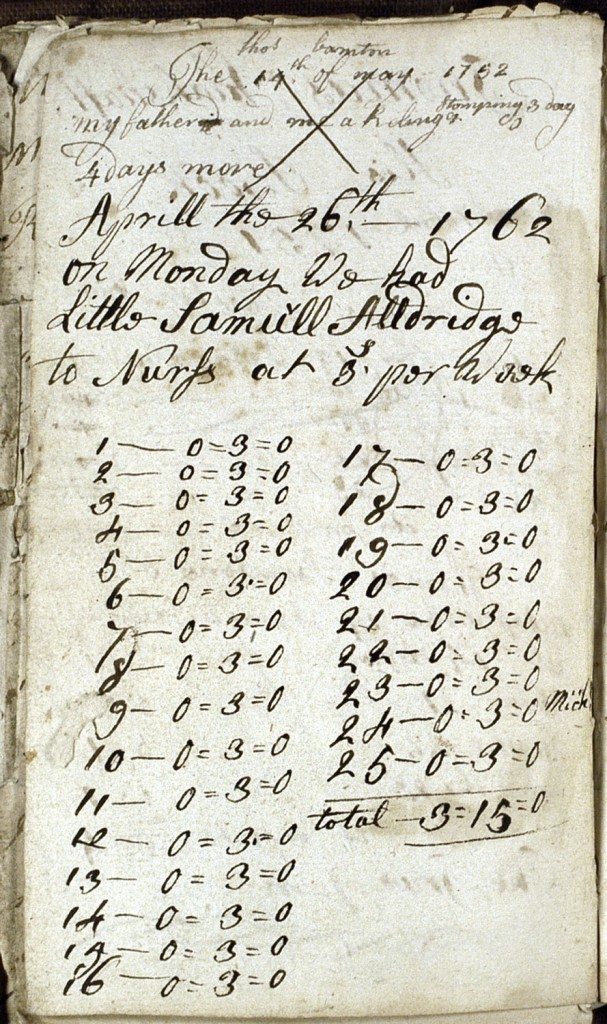 thos bamton
The 14th of may 1752
my father and me a
stomping 3 day
4 days more
Aprill the 26th — 1762
on Monday We had
Little Samuell Alldridge
to Nurss at 3s per Week
1 — 0=3=0
2 — 0=3=0
3 — 0=3=0
4 — 0=3=0
5 — 0=3=0
6 — 0=3=0
7 — 0=3=0
8 — 0=3=0
9 — 0=3=0
10 — 0=3=0
11 — 0=3=0
12 — 0=3=0
13 — 0=3=0
14 — 0=3=0
14 — 0=3=0
16 — 0=3=0
17 — 0=3=0
18 — 0=3=0
19 — 0=3=0
20 — 0=3=0
21 — 0=3=0
22 — 0=3=0
23 — 0=3=0
24 — 0=3=0 Mich
25 — 0=3=0
total — 3=15=0